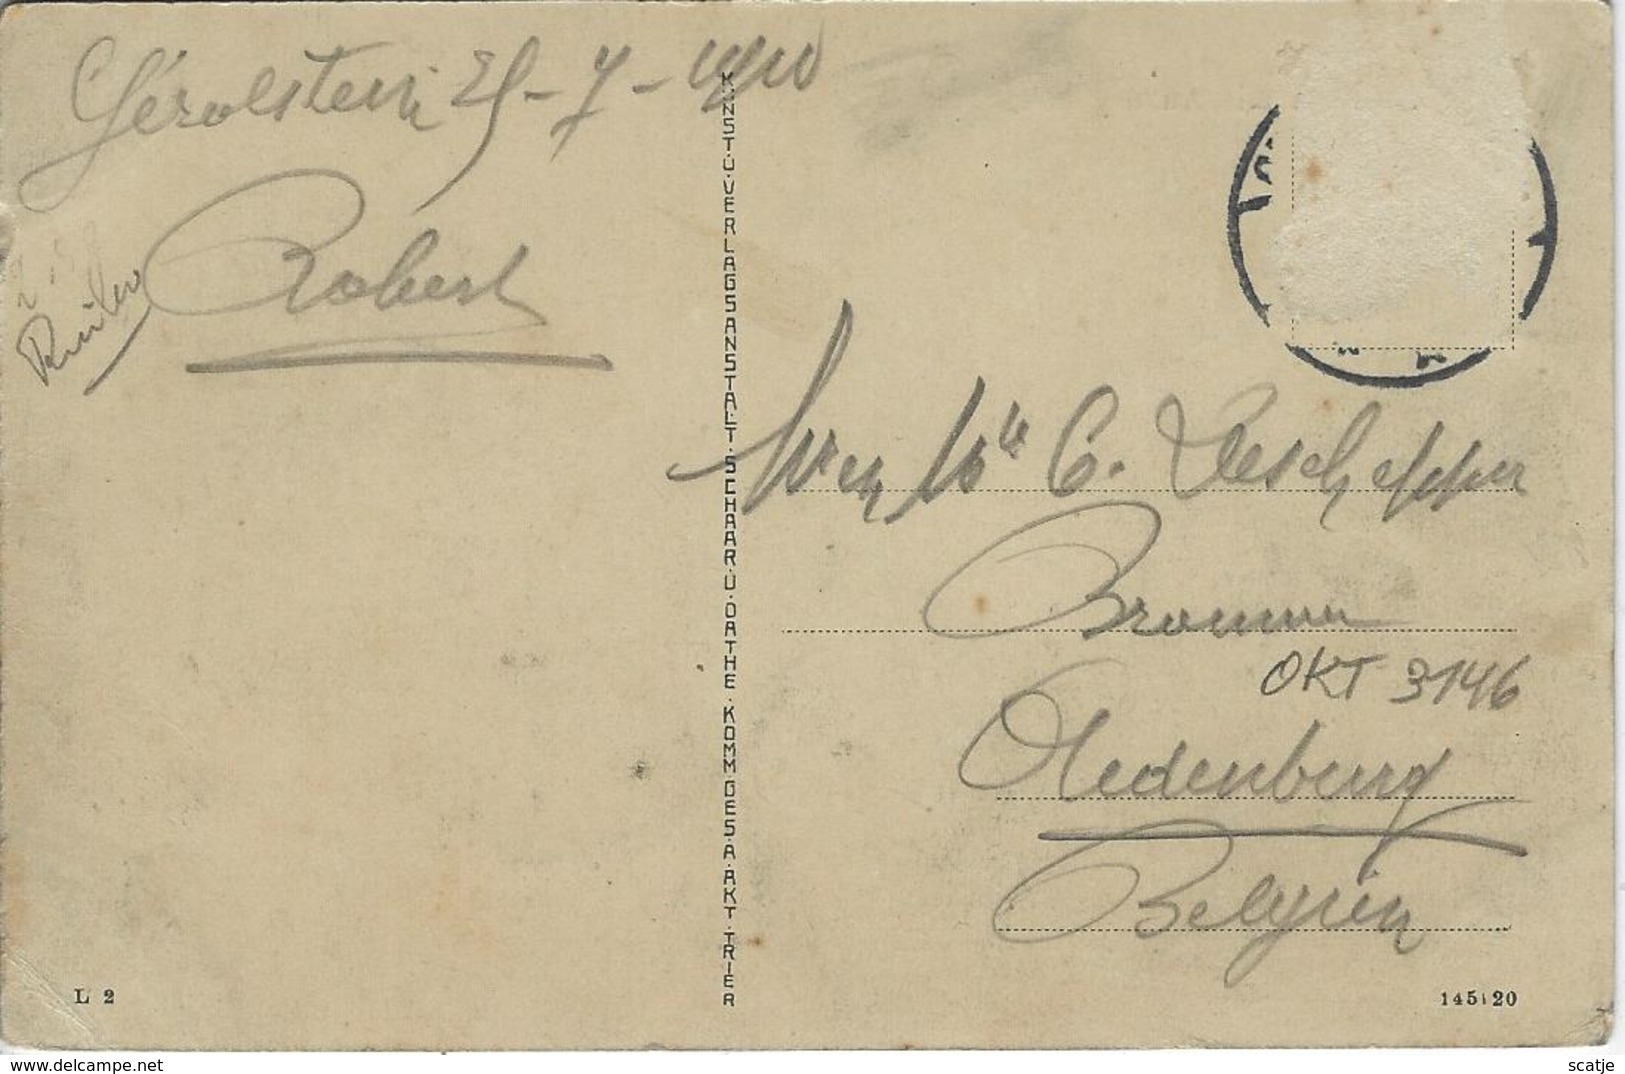 Gérolstein 25-7-1910
Robert
Ruilen
KUNST.U.VERLAGSANSTALT.SCHAAR.U.DATHE.KOMM.GES.A.AKT.TRIER
C. Deschepper
OKT 3146
Oedenburg
Belgien
L 2
145120
www.delcampe.net
scatje